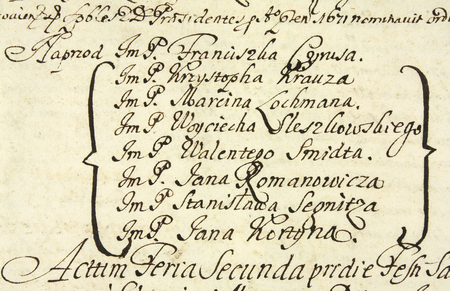 Præsidentes pro Anno 1671 nominavit
Naprzod Im P. Franciszka Cyrusa.
Im P. Krzystopha Krauza
Im P. Marcina Lochmana.
Im P. Woyciecha Oleszkowskiego
Im P. Walentego Smidta.
Im P. Jana Romanowicza
Im P. Stanisława Segnitza
Im P. Jana Kortyna.
Acttum Feria Secunda pridie Festi